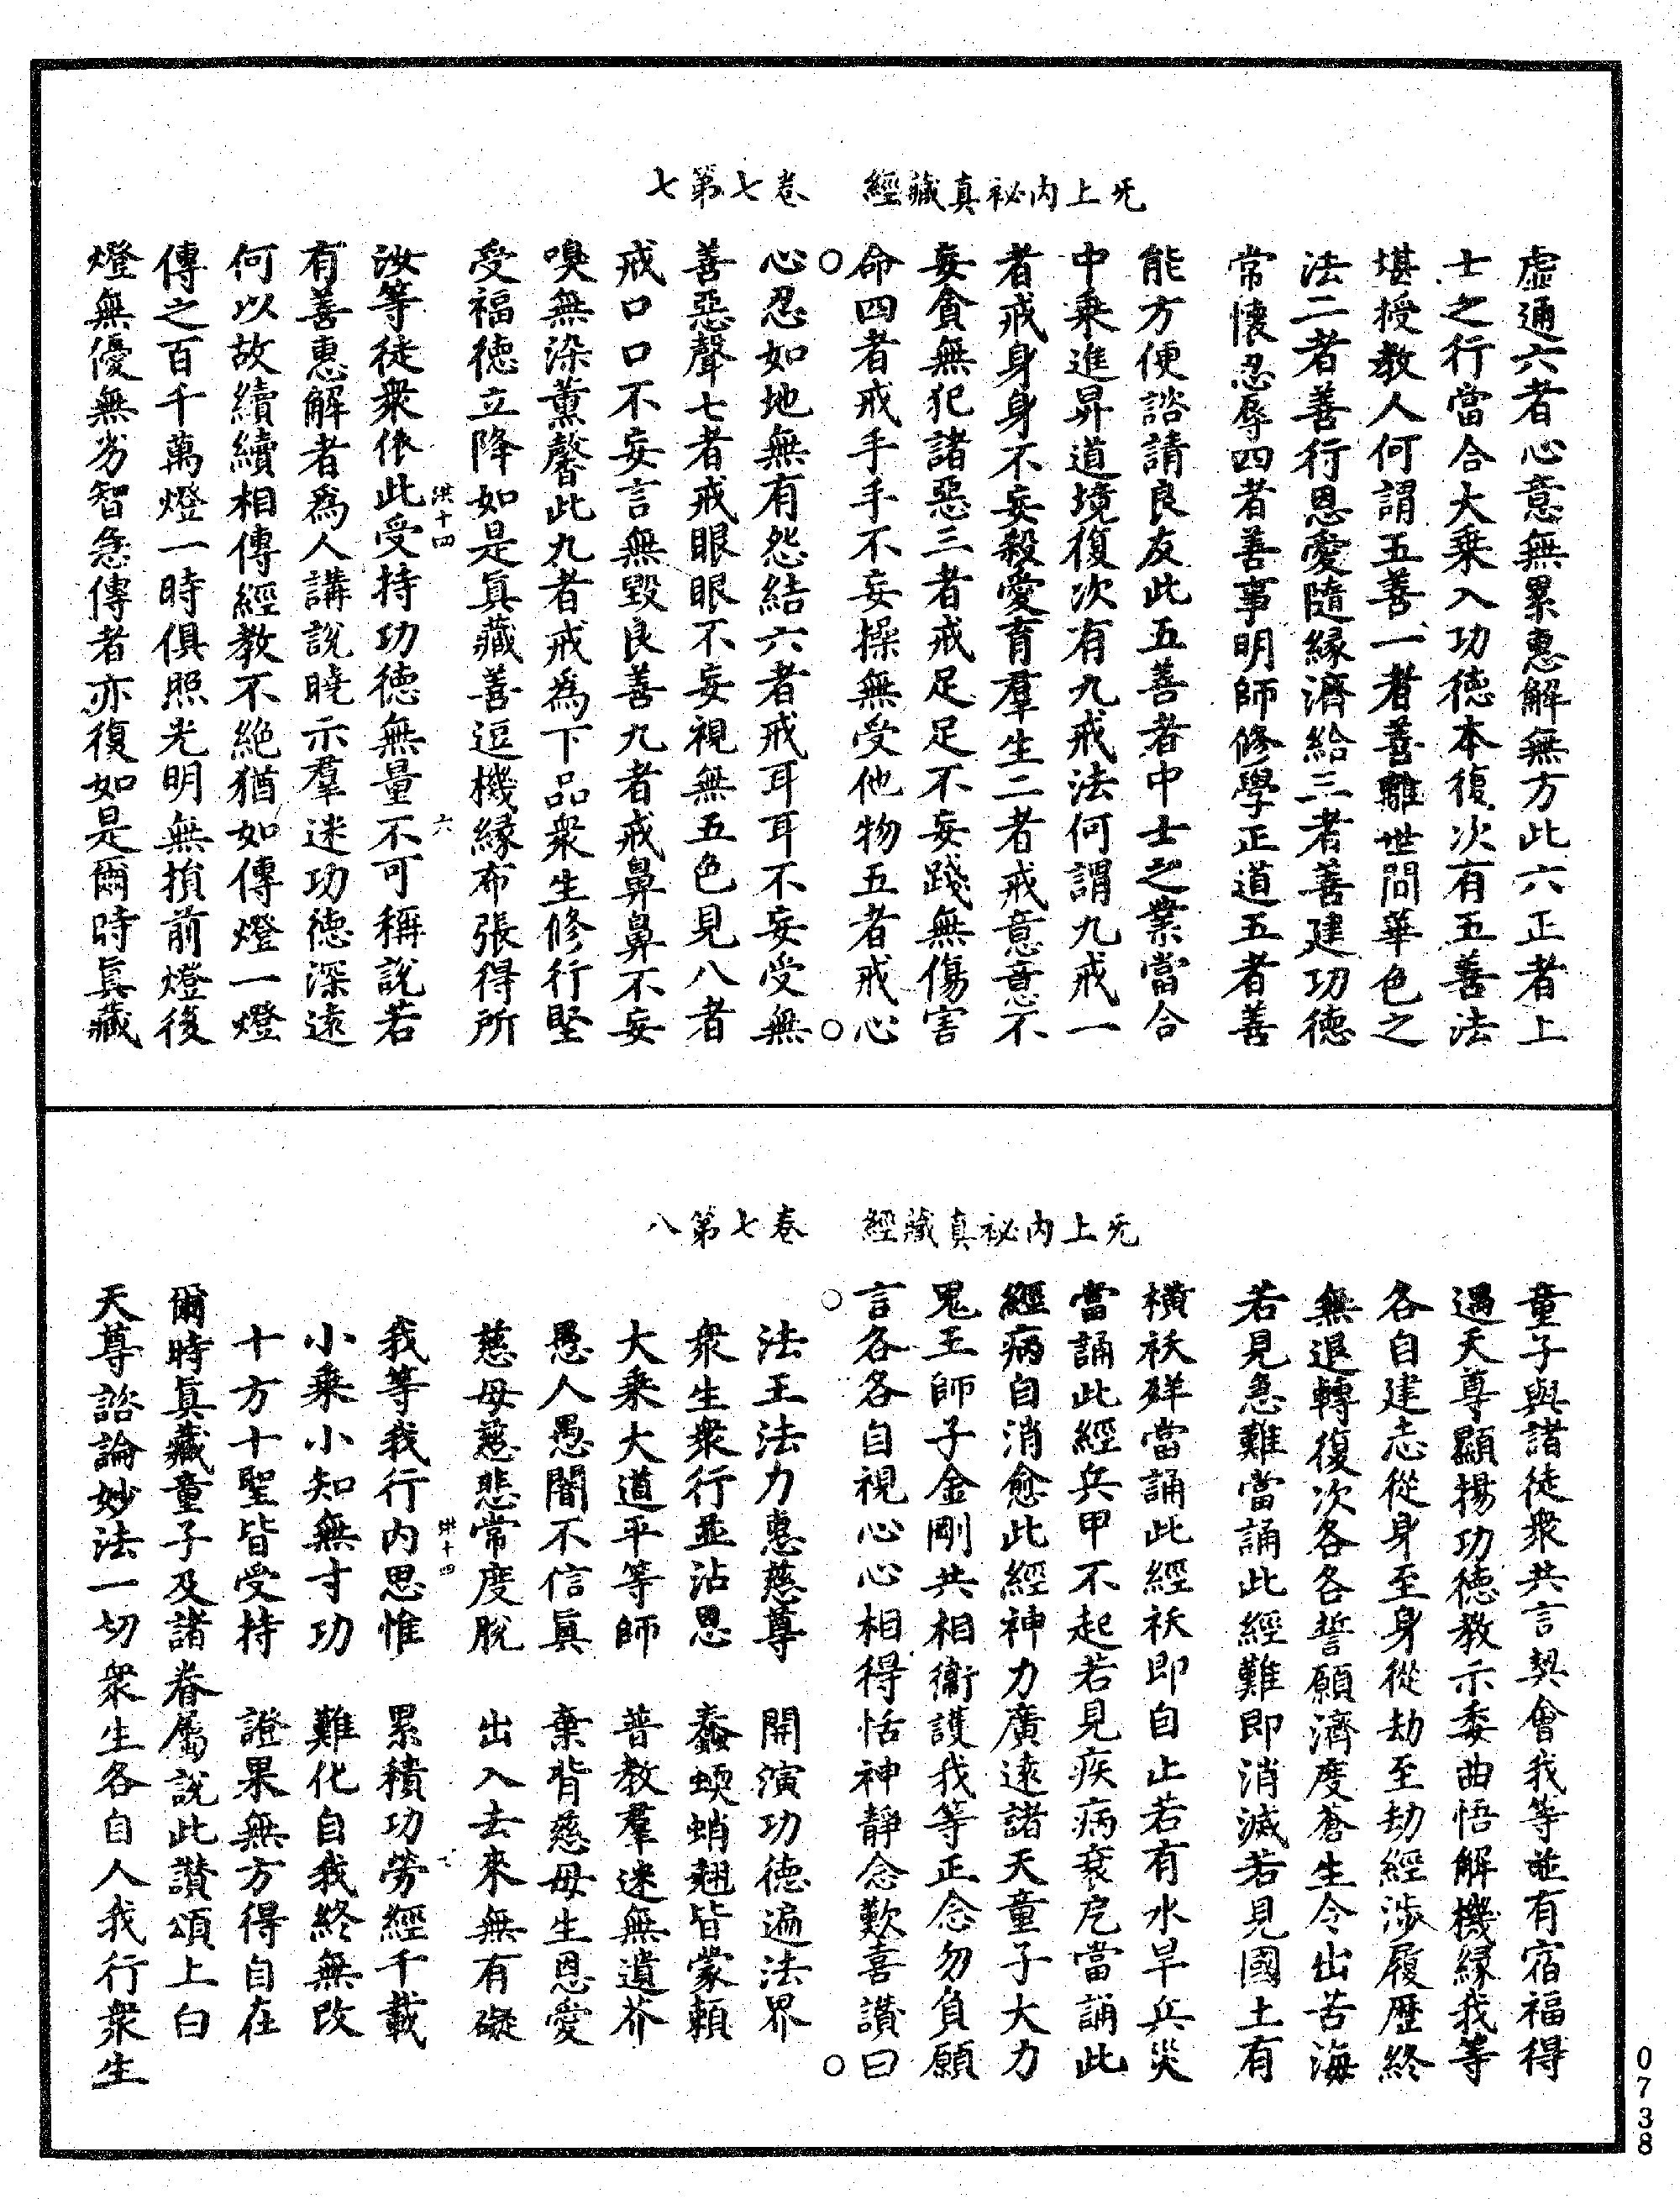 无上內祕真藏經　卷七第七
虛通六者心意無累惠解無方此六正者上
士之行當合大乗入功德本復次有五善法
堪授教人何謂五善一者善離世間華色之
法二者善行恩愛隨縁濟給三者善建功德
常懷忍辱四者善事明師修學正道五者善
能方便諮請良友此五善者中士之業當合
中乗進昇道境復次有九戒法何謂九戒一
者戒身身不妄殺愛育羣生二者戒意意不
妄貪無犯諸惡三者戒足足不妄踐無傷害
命四者戒手手不妄操無受他物五者戒心
心忍如地無有怨結六者戒耳耳不妄受無
善惡聲七者戒眼眼不妄視無五色見八者
戒口口不妄言無毀良善九者戒鼻鼻不妄
嗅無染薰馨此九者戒爲下品衆生修行堅
受福德立降如是眞藏善逗機縁布張得所
洪十四　六
汝等徒衆依此受持功德無量不可稱說若
有善惠解者爲人講說曉示羣迷功德深遠
何以故續續相傳經教不絶猶如傳燈一燈
傳之百千萬燈一時俱照光明無損前燈後
燈無優無劣智急傳者亦復如是爾時眞藏
无上內祕真藏經　卷七第八
童子與諸徒衆共言契會我等並有宿福得
遇天尊顯揚功德教示委曲悟解機縁我等
各自建志從身至身從劫至劫經涉履歷終
無退轉復次各各誓願濟度蒼生令出苦海
若見急難當誦此經難即消滅若見國土有
橫祅䍧當誦此經祅即自止若有水旱兵災
當誦此經兵甲不起若見疾病衰危當誦此
經病自消愈此經神力廣遠諸天童子大力
鬼王師子金剛共相衞護我等正念勿負願
言各各自視心心相得恬神靜念歎喜讚曰
法王法力惠慈尊　開演功德遍法界
衆生衆行並沾恩　蠢蝡蛸翹皆蒙頼
大乗大道平等師　普教羣迷無遺芥
愚人愚闇不信眞　棄背慈母生恩愛
慈母慈悲常度脫　出入去來無有礙
洪十四
我等我行內思惟　累積功勞經千載
小乗小知無寸功　難化自我終無改
十方十聖皆受持　證果無方得自在
爾時眞藏童子及諸眷屬說此讚頌上白
天尊諮論妙法一切衆生各自人我行衆生
0738